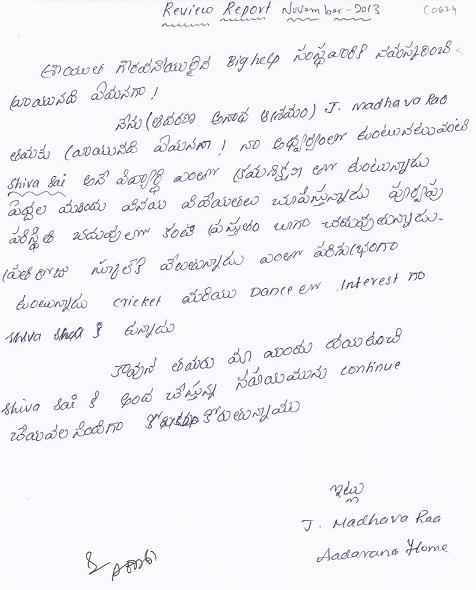 Review Report November-2013
C0624
గౌరవనీయులైన Bighelp సంస్థ వారికి నమస్కరించి
వ్రాయునది ఏమనగా!
నేను (ఆదరణ అనాథ ఆశ్రమం) J. Madhava Rao
తమకు వ్రాయునది ఏమనగా! నా ఆధ్వర్యంలో ఉంటున్నటువంటి
Shiva Sai అనే విద్యార్థి ఎంతో క్రమశిక్షణ లో ఉంటున్నాడు
పెద్దల యందు వినయ విధేయతలు చూపిస్తున్నాడు పూర్వపు
పరిస్థితి చదువులో కంటే ప్రస్తుతం బాగా చదువుతున్నాడు.
ప్రతిరోజు స్కూల్ కి వెలుతున్నాడు ఎంతో పరిశుభ్రంగా
ఉంటున్నాడు cricket మరియు Dance లో Interest గా
Shiva కి ఉన్నాడు
కావున తమరు మా యందు దయఉంచి
Shiva Sai కి అంద చేస్తున్న సహాయమును continue
చేయవలసిందిగా కోరుతున్నాము
ఇట్లు
J. Madhava Rao
Aadarana Home